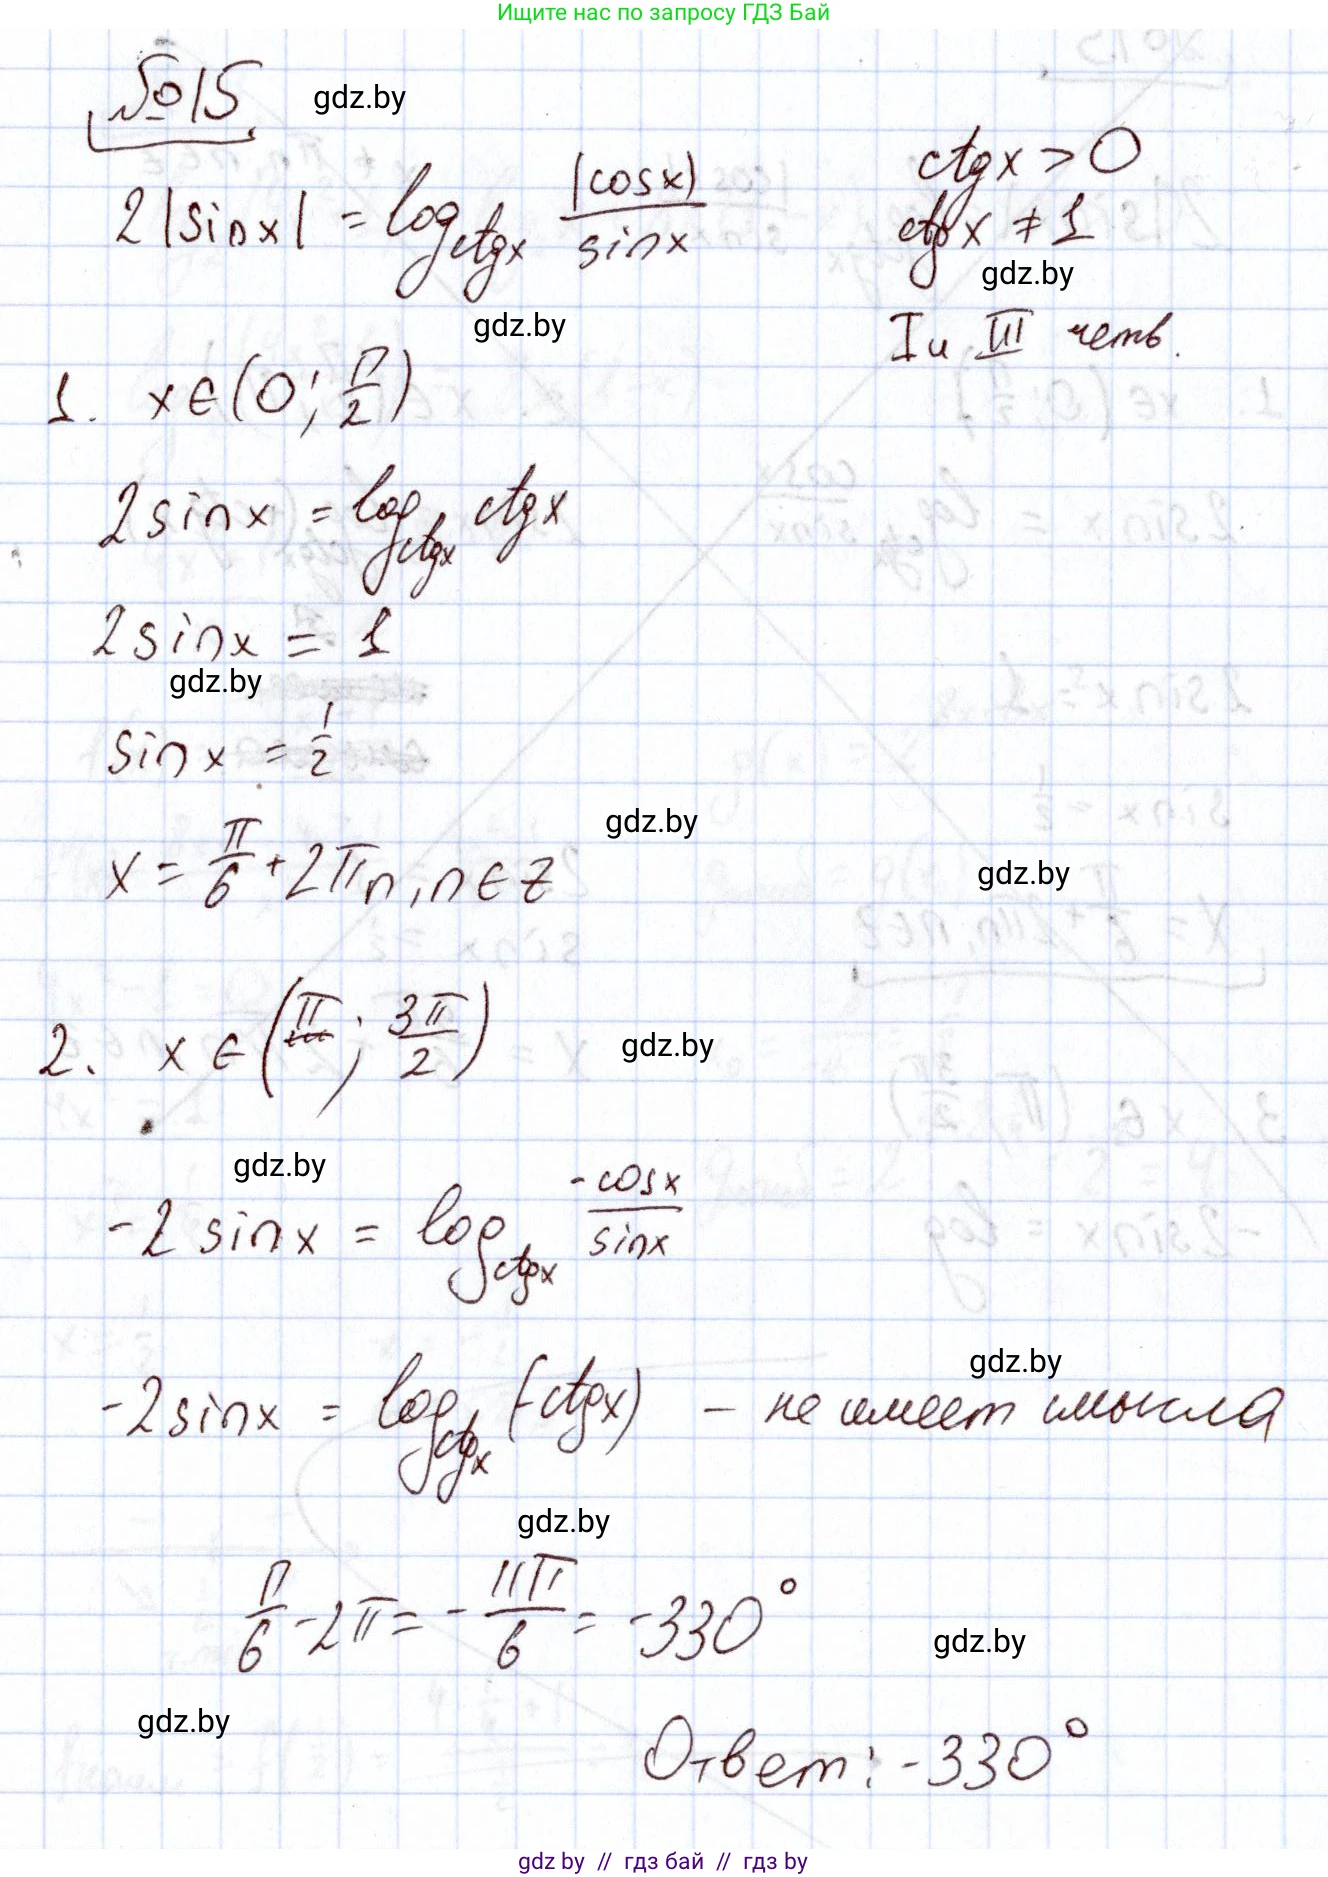 Ищите нас по запросу ГДЗ Бай
№15 gdz.by
2|sinx| = log_ctgx |cosx|/sinx
ctgx > 0
ctgx ≠ 1
gdz.by
gdz.by
I и III четв.
1. x∈(0; π/2)
2sinx = log_ctgx ctgx
2sinx = 1
gdz.by
sinx = 1/2
gdz.by
x = π/6 + 2πn, n∈Z
gdz.by
2. x∈(π; 3π/2)
gdz.by
gdz.by
-2sinx = log_ctgx -cosx/sinx
gdz.by
-2sinx = log_ctgx (-ctgx) – не имеет смысла
gdz.by
π/6 - 2π = - 11π/6 = -330°
gdz.by
gdz.by
Ответ: -330°
gdz by // гдз бай // гдз by